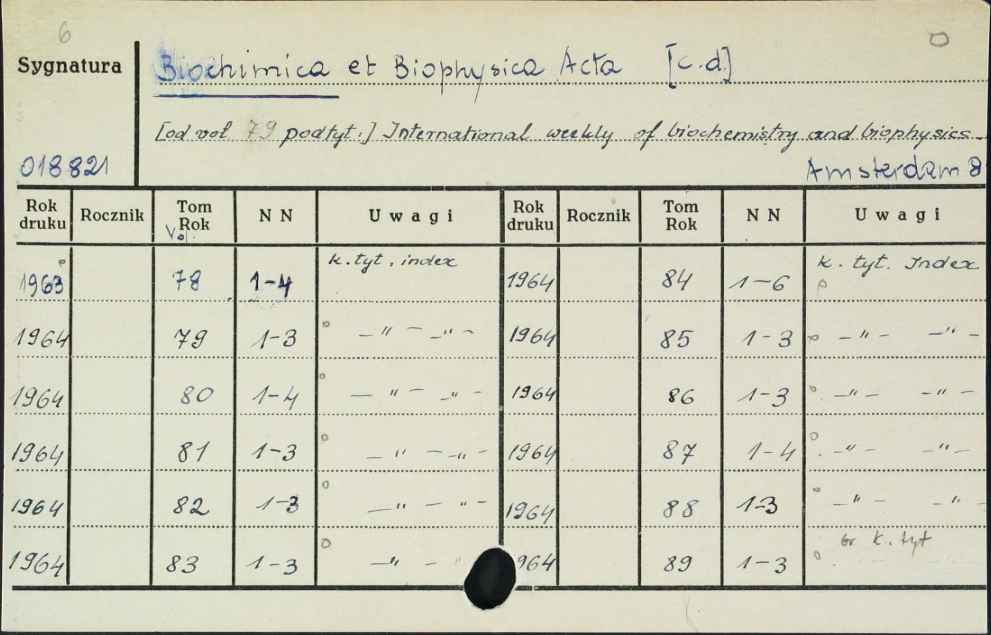 6
Sygnatura Biochimica et Biophysica Acta [c.d.]
[od vol 79 podtyt:] International weekly of biochemistry and biophysics.
018821 Amsterdam 8
Rok druku Rocznik Tom Rok Vol. N N Uwagi Rok druku Rocznik Tom Rok N N Uwagi
1963 78 1-4 k. tyt. index 1964 84 1-6 k. tyt. Index
1964 79 1-3 -"- -"- 1964 85 1-3 -"- -"-
1964 80 1-4 -"- -"- 1964 86 1-3 -"- -"-
1964 81 1-3 -"- -"- 1964 87 1-4 -"- -"-
1964 82 1-3 -"- "- 1964 88 1-3 -"- -"-
1964 83 1-3 -"- " 964 89 1-3 k. tyt